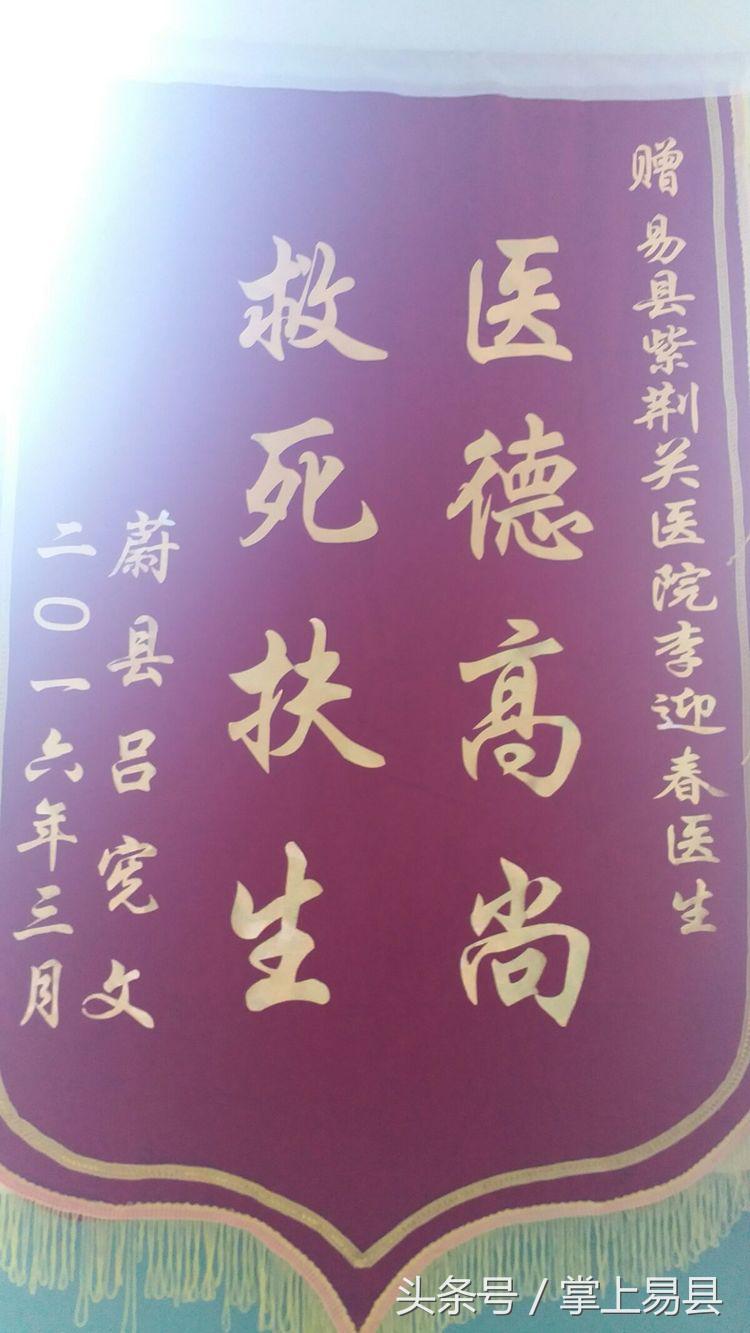 赠易县紫荆关医院李迎春医生
医德高尚
救死扶生
蔚县吕宪文
二〇一六年三月
头条号/掌上易县